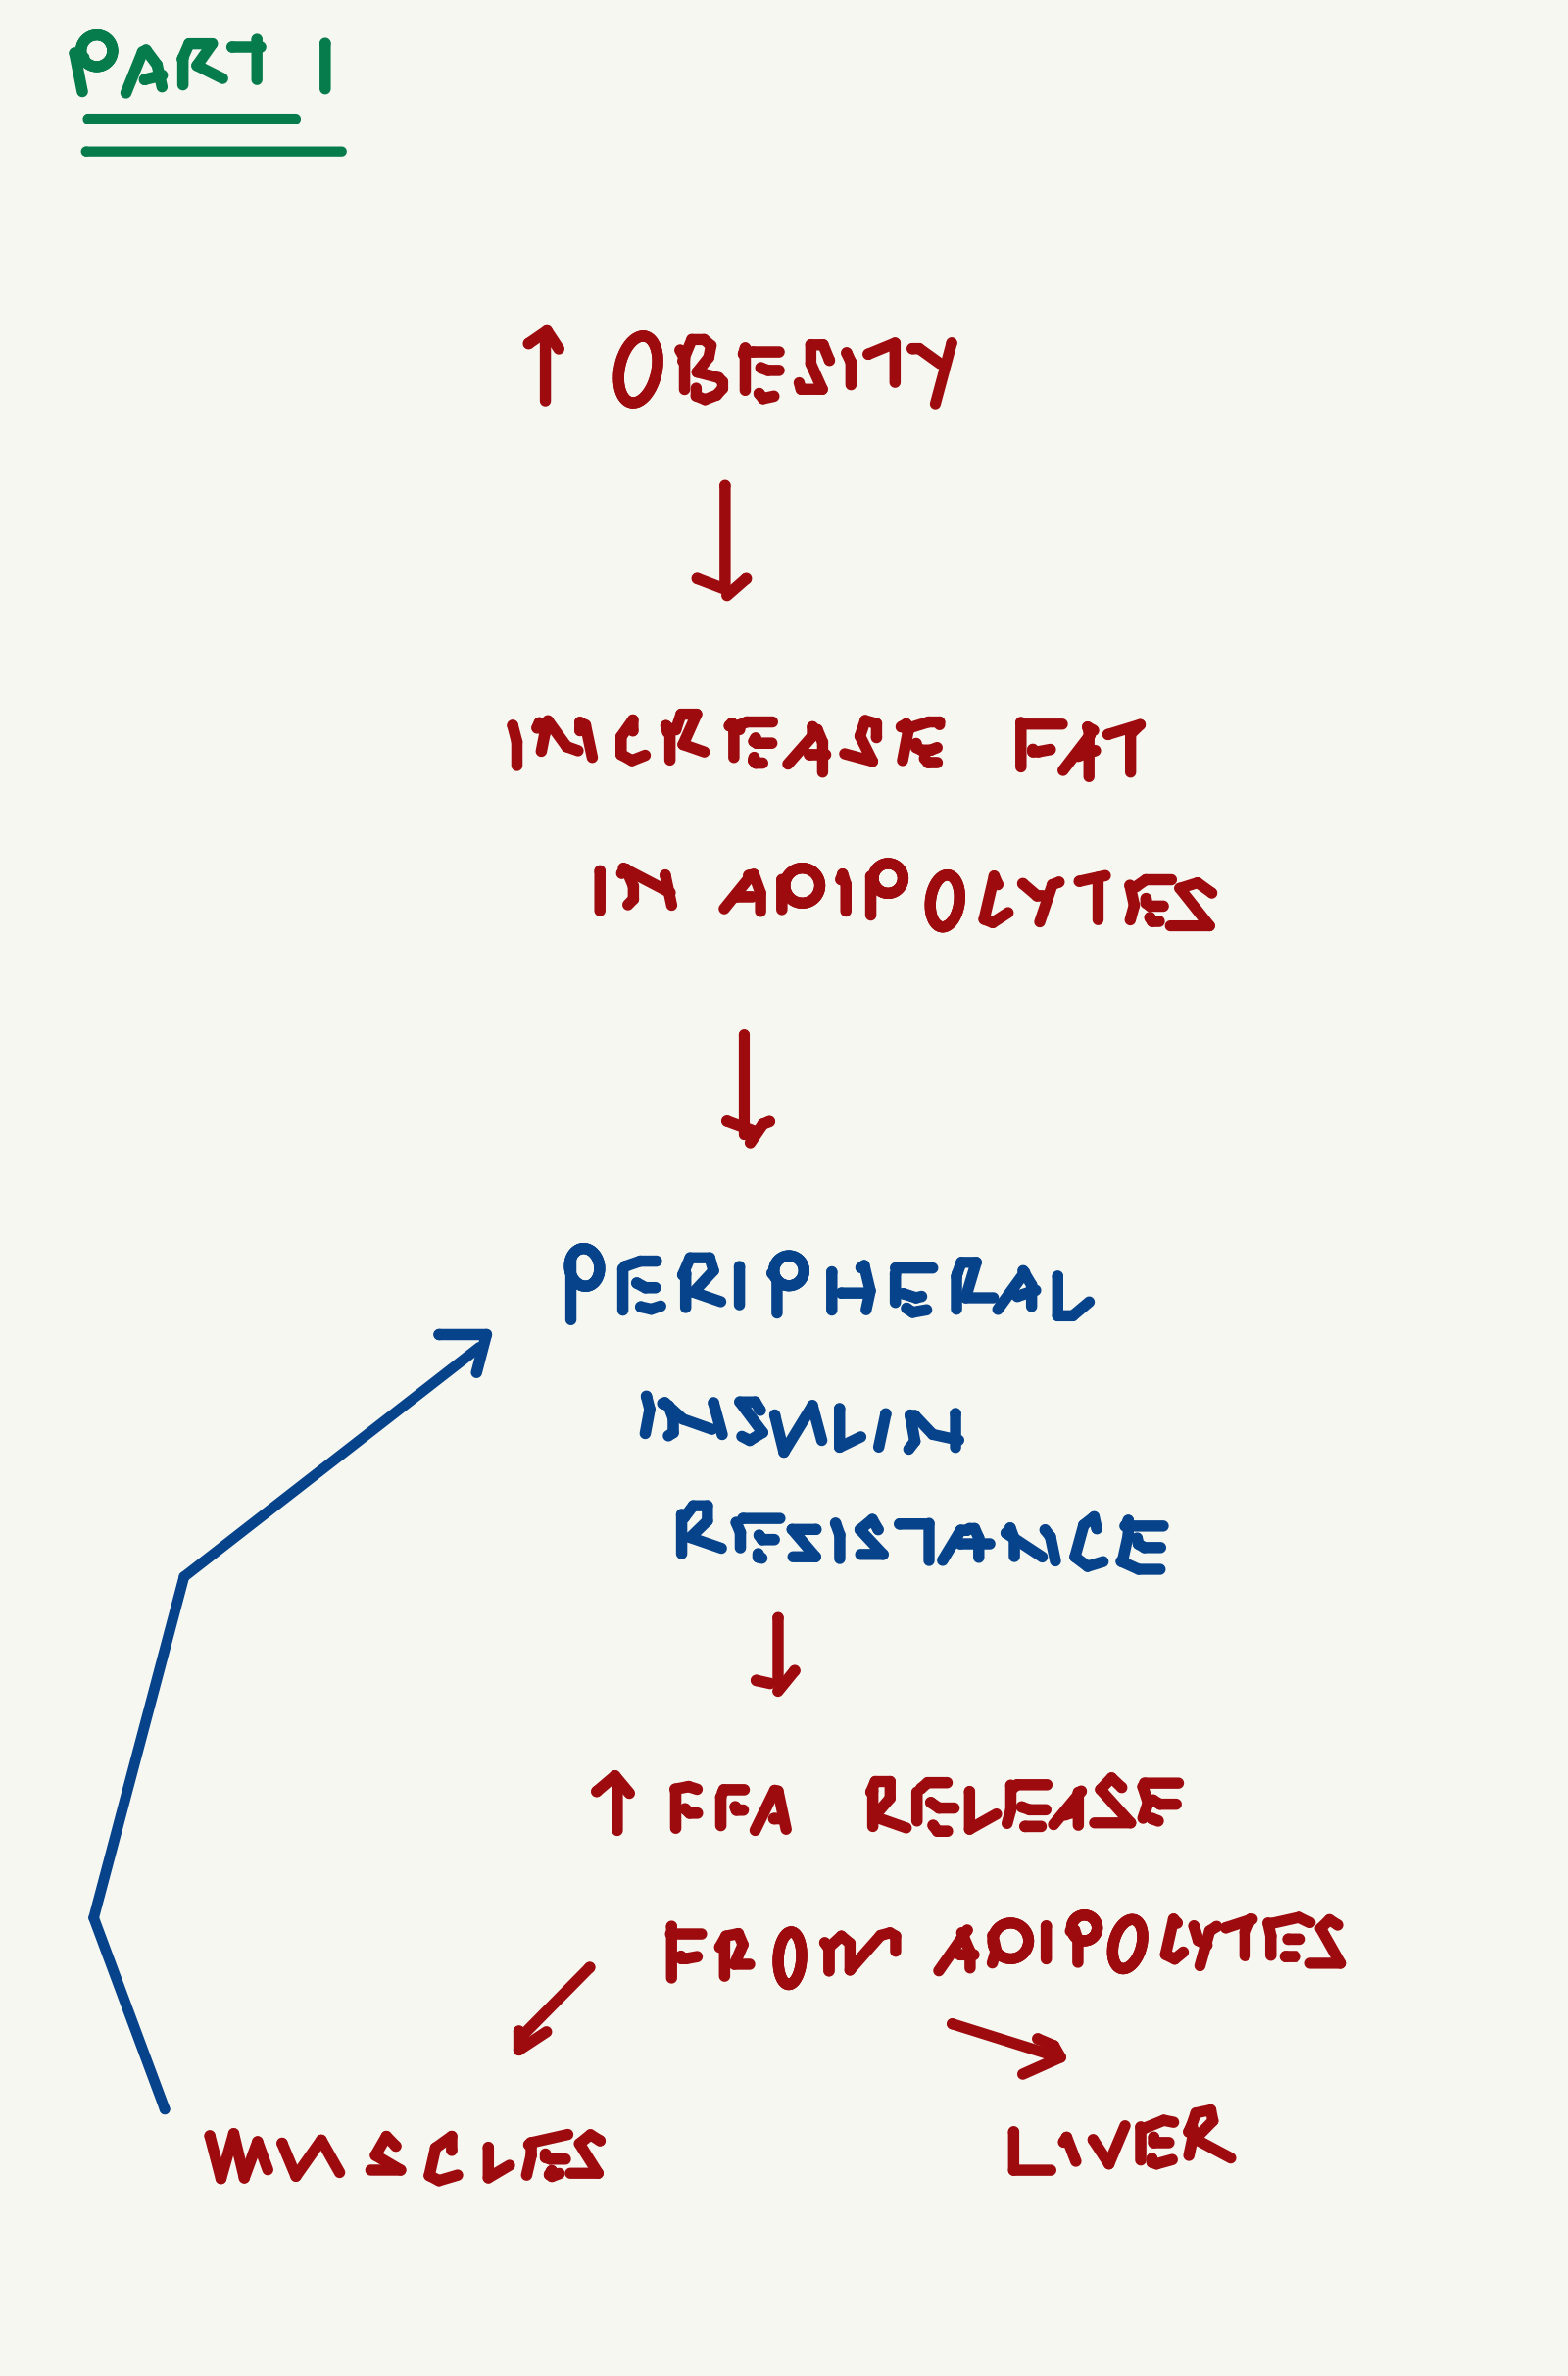 PART 1
↑ OBESITY
↓
INCREASE FAT
IN ADIPOCYTES
↓
PERIPHERAL
INSULIN
RESISTANCE
↓
↑ FFA RELEASE
FROM ADIPOCYTES
MUSCLES LIVER